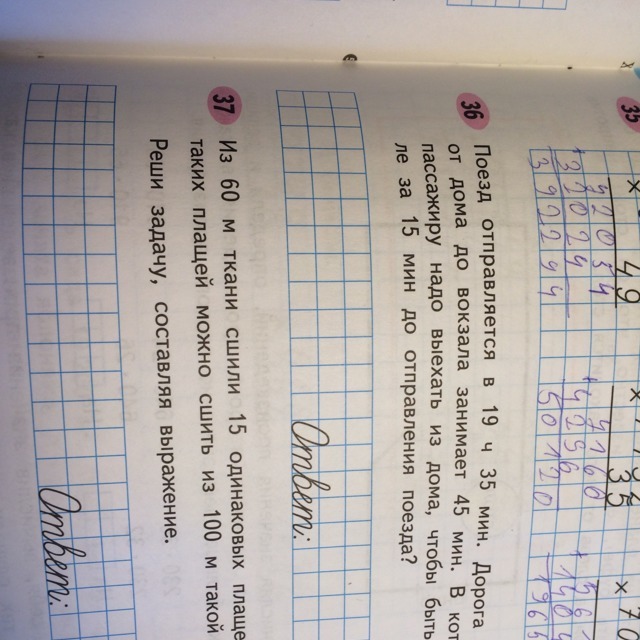 35
× 49
72054
+ 32024
392294
× 35
7160
+ 4296
50120
36 Поезд отправляется в 19 ч 35 мин. Дорога
от дома до вокзала занимает 45 мин. В
пассажиру надо выехать из дома, чтобы быть
ле за 15 мин до отправления поезда?
Ответ:
37 Из 60 м ткани сшили 15 одинаковых
таких плащей можно сшить из 100 м такой
Реши задачу, составляя выражение.
Ответ: